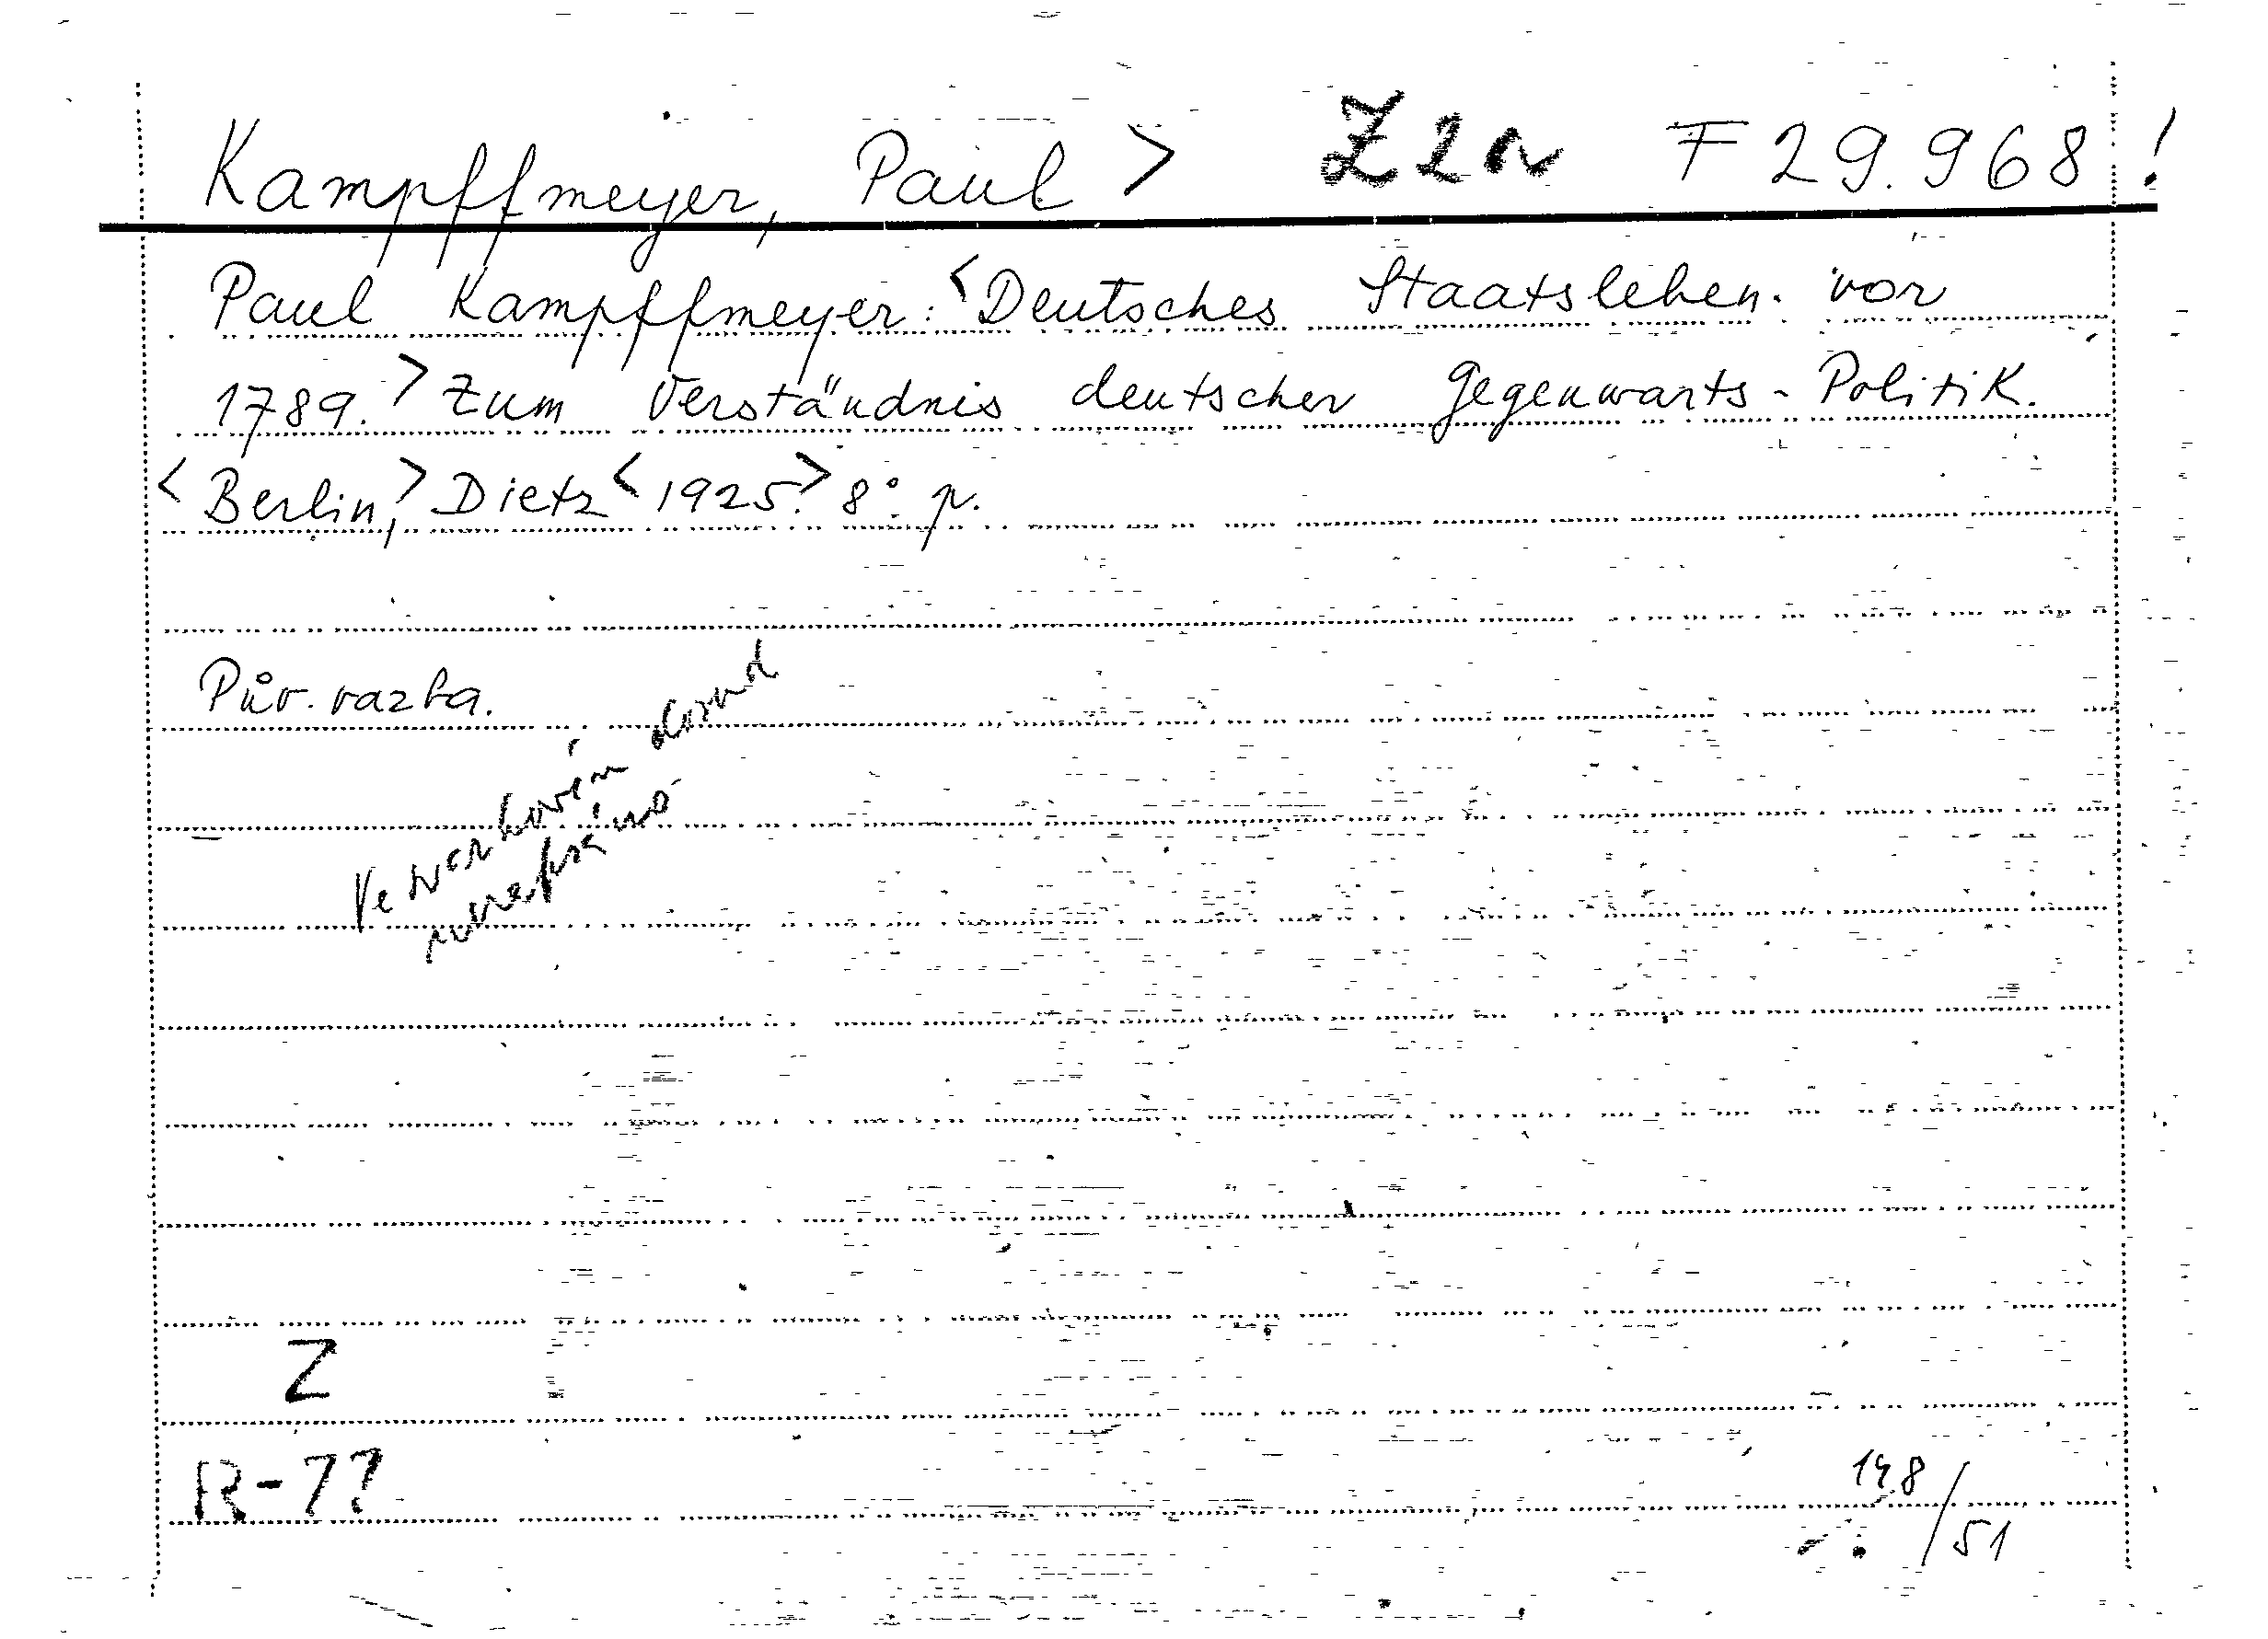 Kampffmeyer, Paul > Z2a F 29.968!
Paul Kampffmeyer: <Deutsches Staatsleben vor
1789.> Zum Verständnis deutscher Gegenwarts-Politik.
<Berlin,> Dietz <1925.> 8°. p.
Pův. vazba.
Ve zvukovém
Z
R-77
148/51